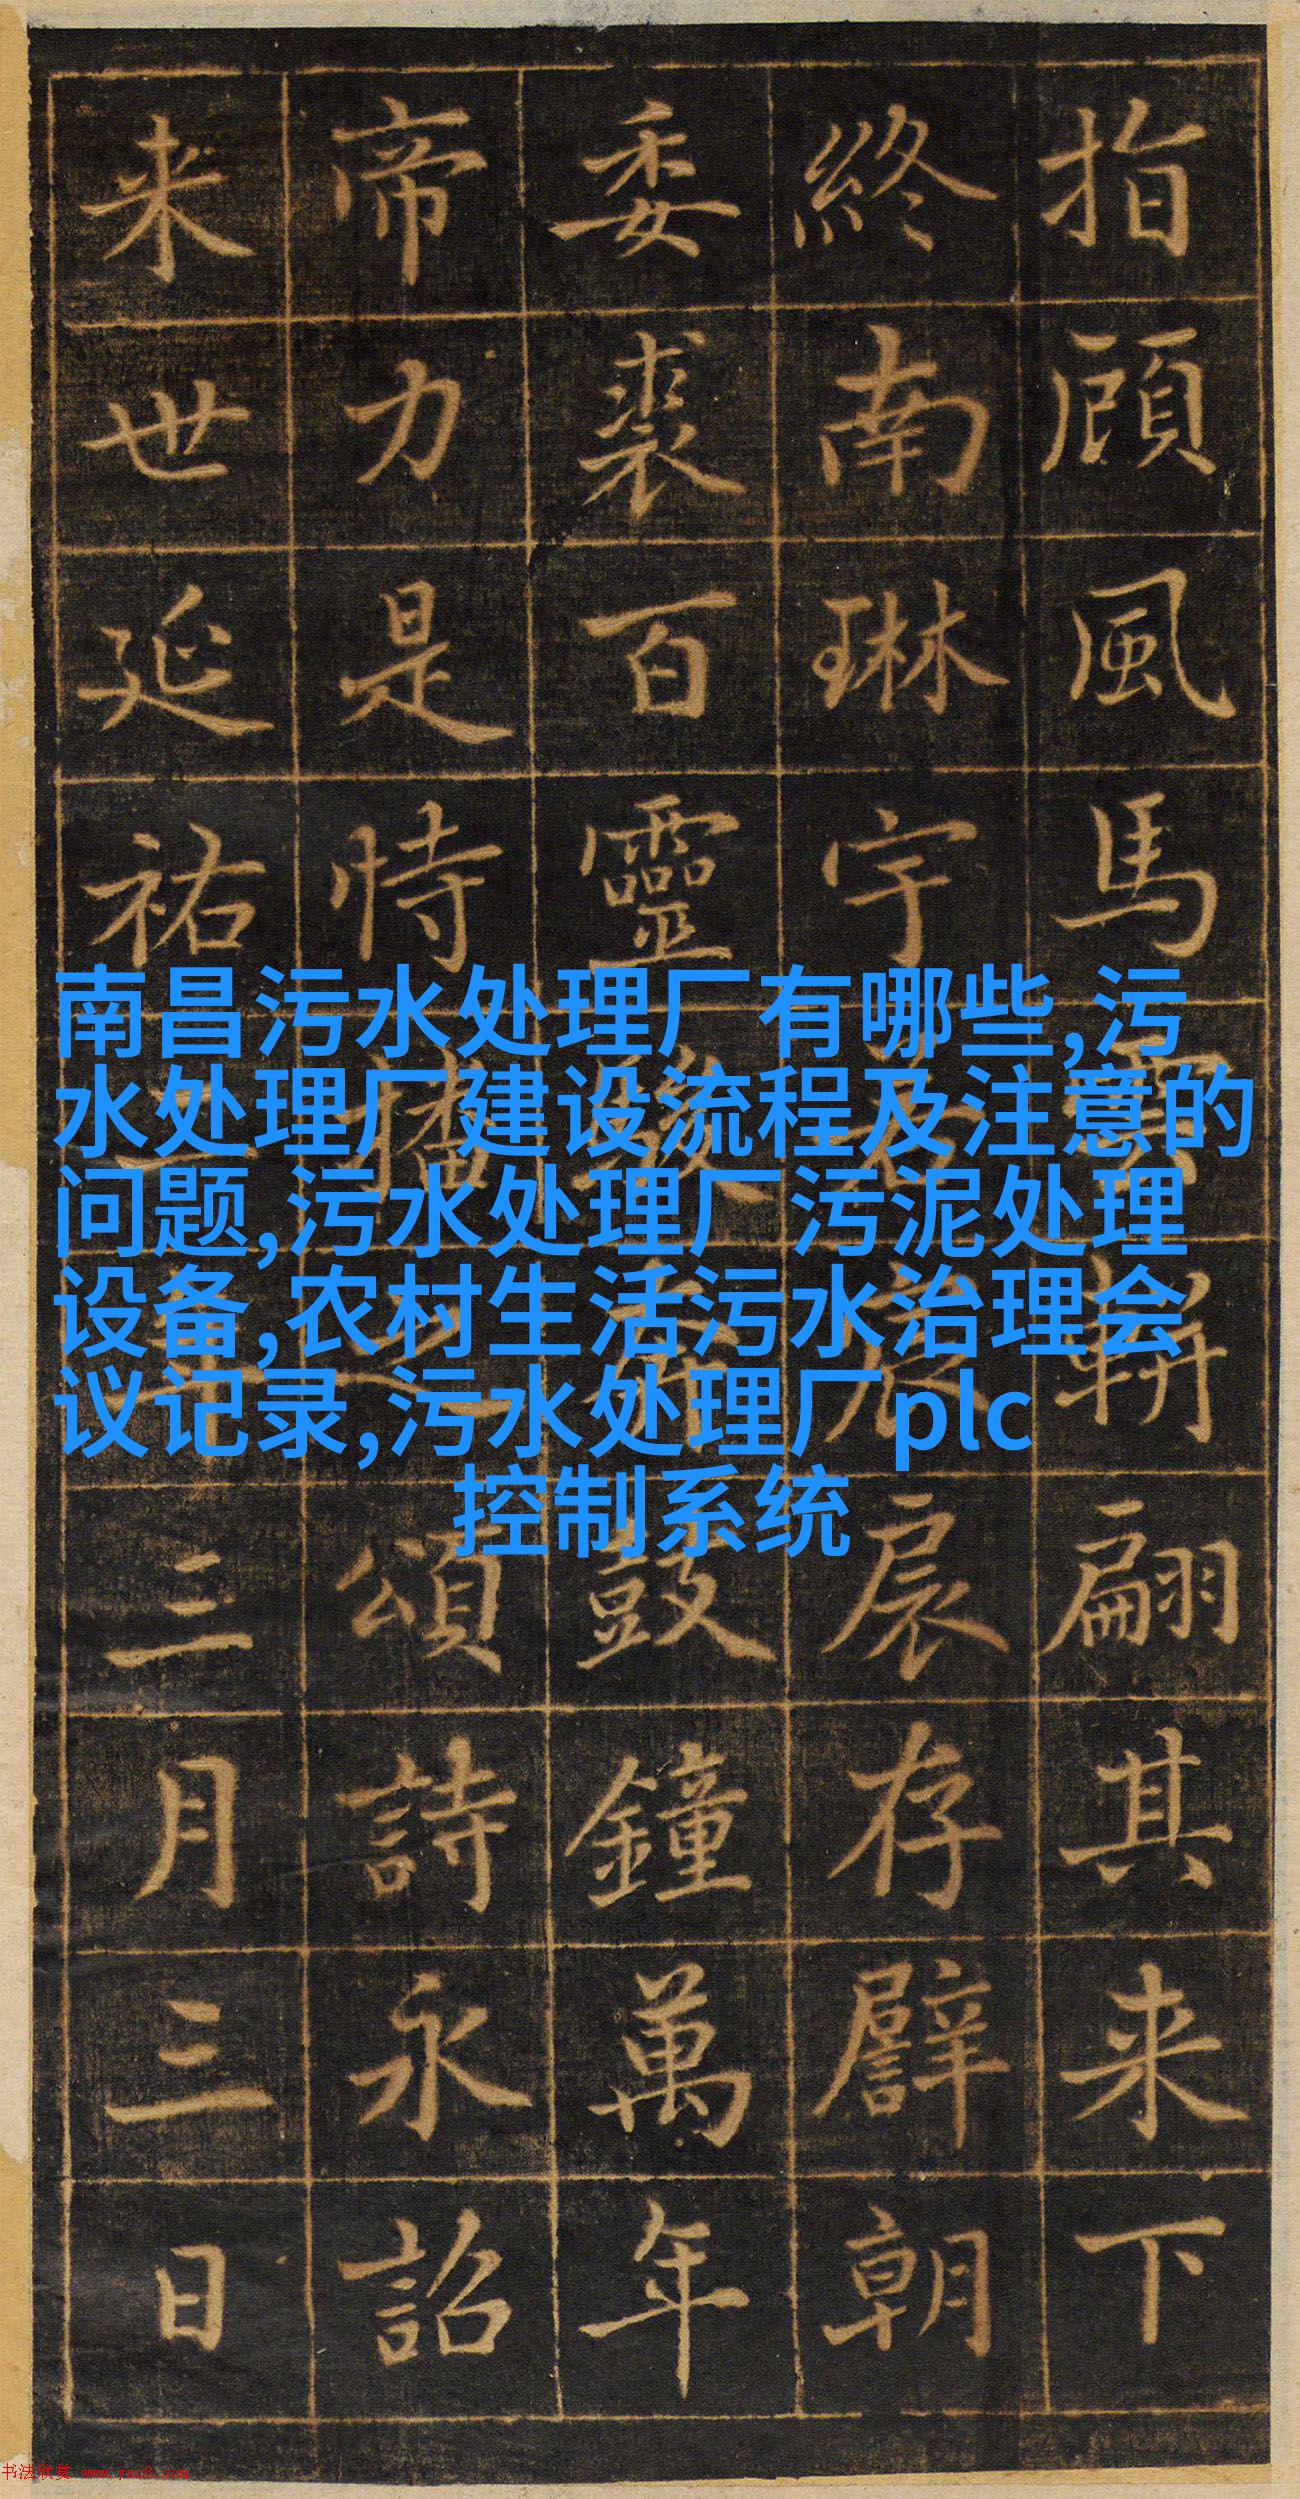 南昌污水处理厂有哪些,污
水处理厂建设流程及注意的
问题,污水处理厂污泥处理
设备,农村生活污水治理会
议记录,污水处理厂plc
控制系统
指顧風馬雲軿翩其来下
終南琳宇扆存譬朝
委裘百靈鼓鐘萬年
帝力是恃播之頌詩永詔
来世延祐二年三月三日
书法欣赏 www.yac8.com